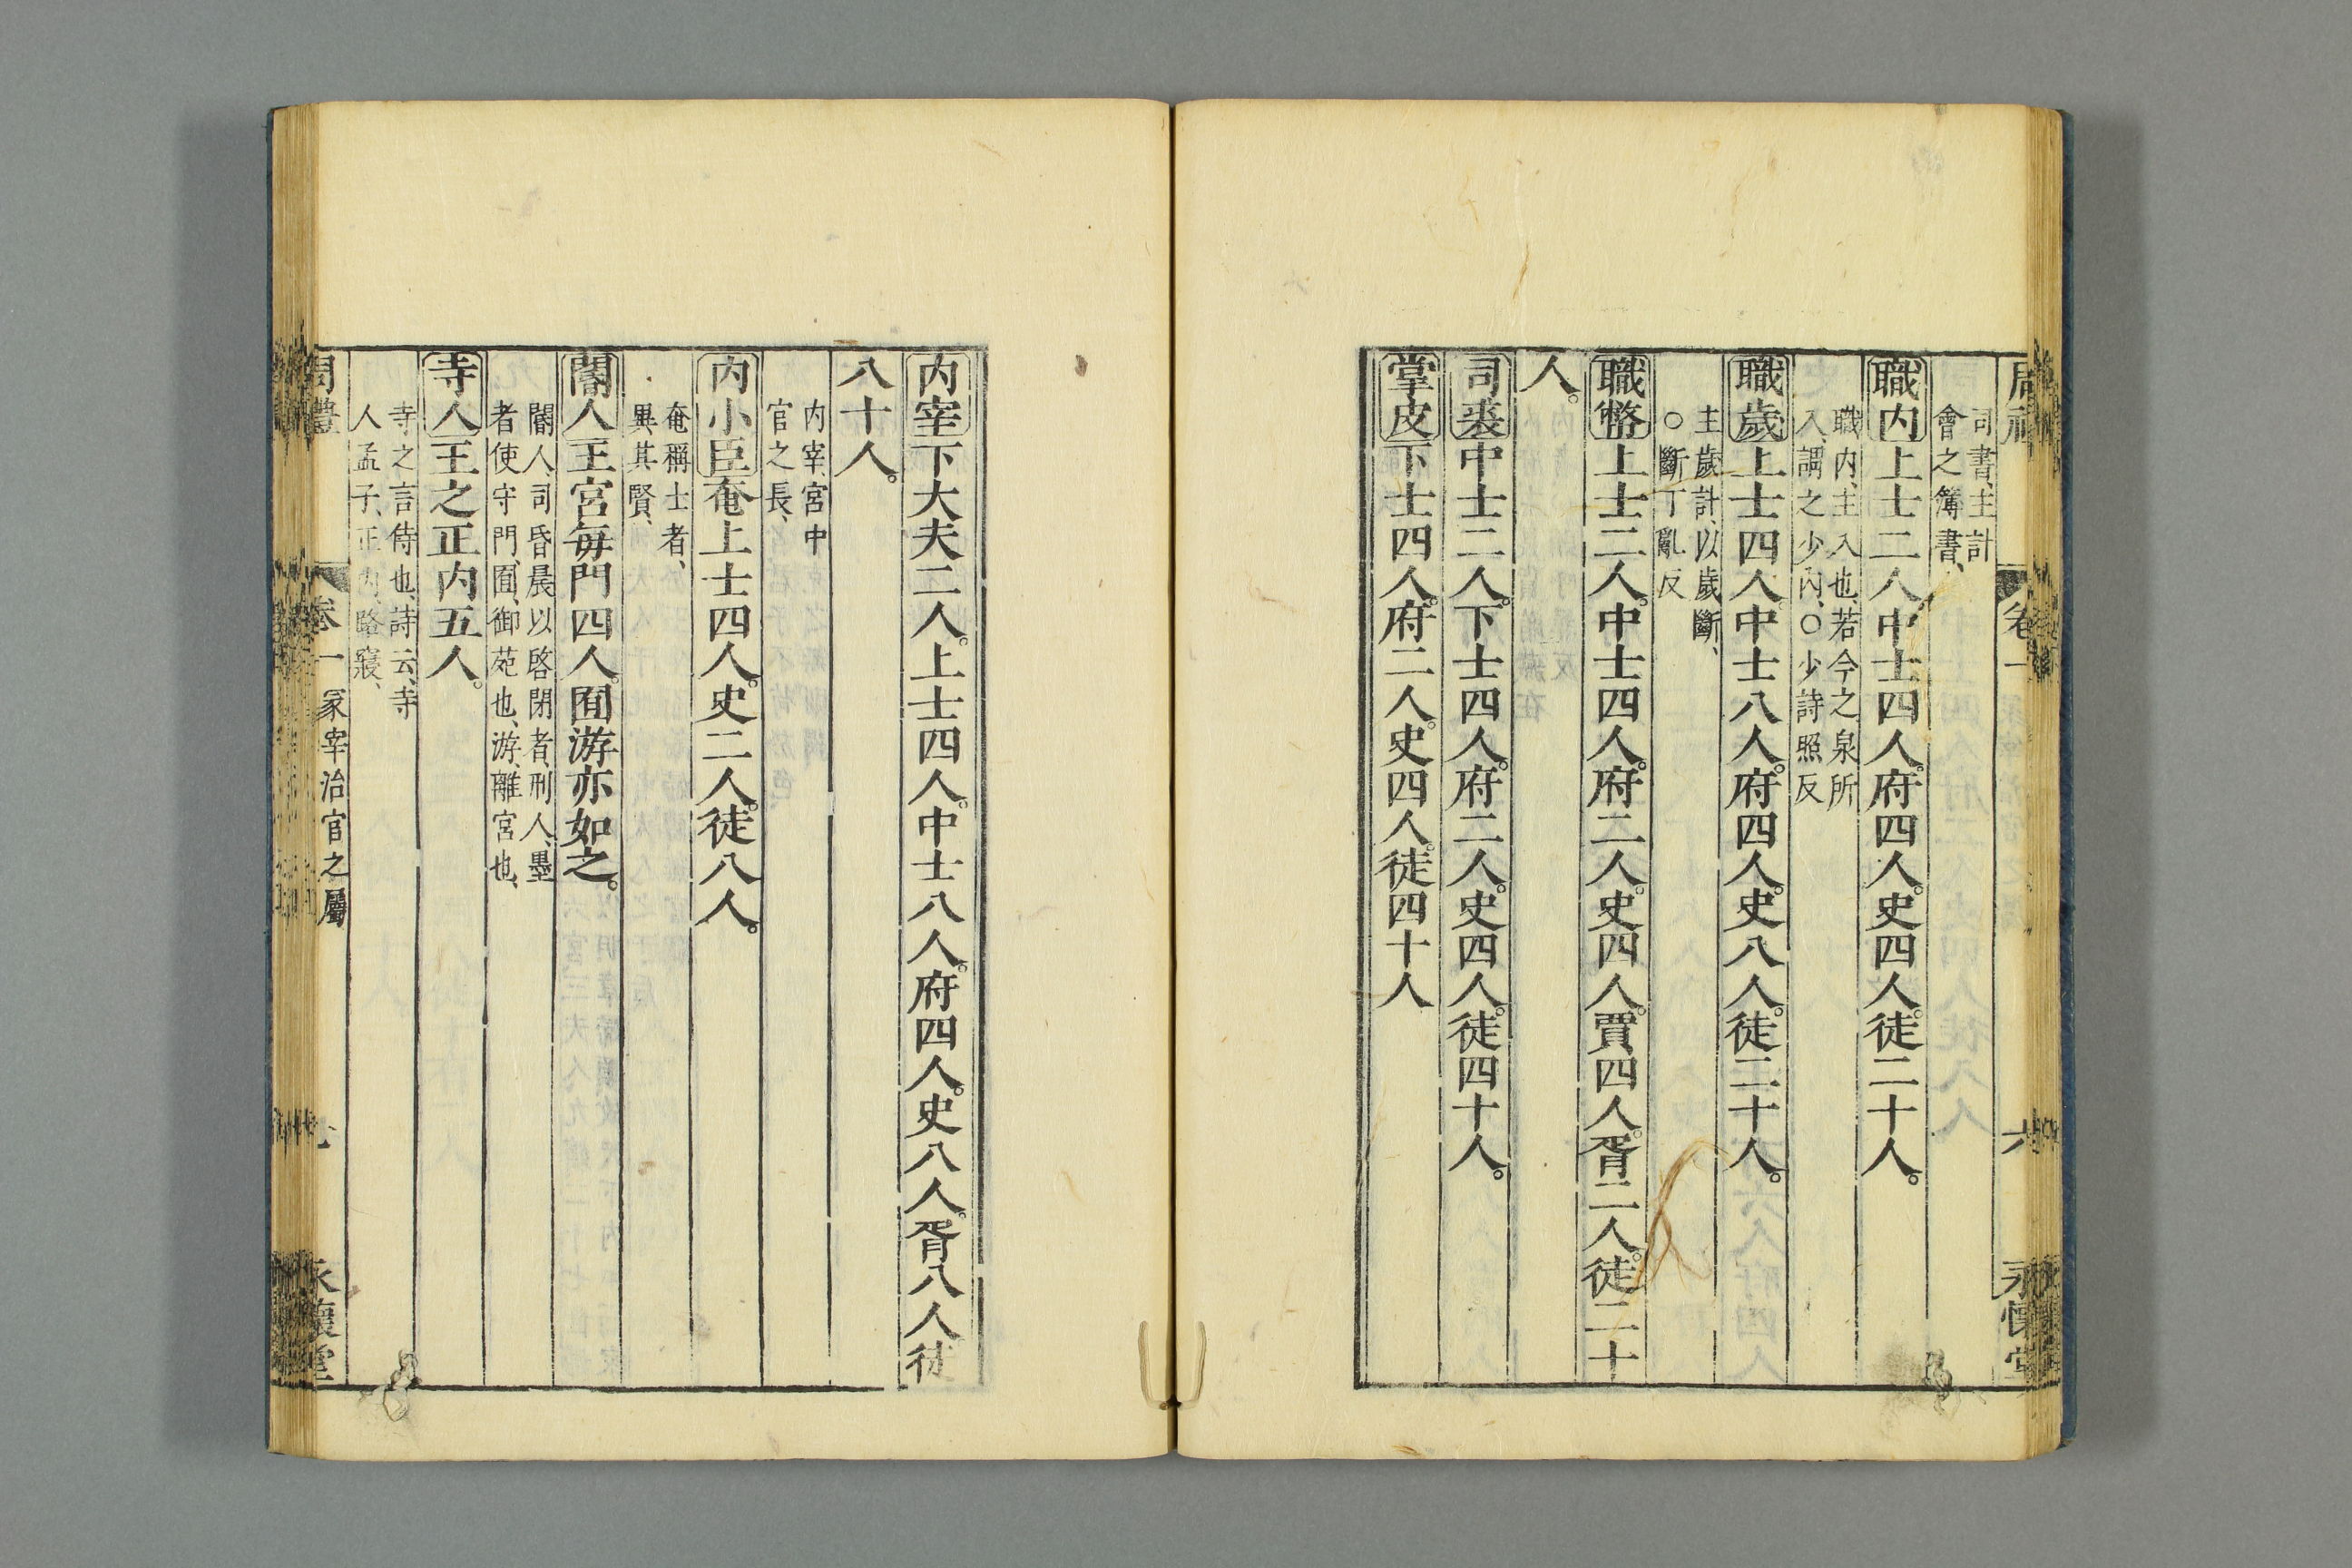 周禮 卷一 六 永懷堂
司書、主計
會之簿書、
職内上士二人中士四人府四人。史四人。徒二十人。
職内、主入也、若今之泉所
入、謂之少内、○少詩照反
職歲上士四人中士八人。府四人。史八人。徒二十人。
主歲計、以歲斷、
○斷丁亂反
職幣上士二人。中士四人。府二人。史四人。賈四人。胥二人。徒二十
人。
司裘中士二人。下士四人。府二人。史四人。徒四十人。
掌皮下士四人。府二人。史四人。徒四十人
内宰下大夫二人。上士四人。中士八人。府四人。史八人。胥八人徒
八十人。
内宰、宮中
官之長、
内小臣奄上士四人。史二人。徒八人。
奄稱士者、
異其賢、
閽人王宮每門四人。囿游亦如之。
閽人、司昏晨以啓閉者、刑人、墨
者使守門、囿、御苑也、游、離宮也、
寺人王之正内五人。
寺之言侍也、詩云、寺
人孟子、正内、路寢、
周禮 卷一 冢宰治官之屬 七 永懷堂